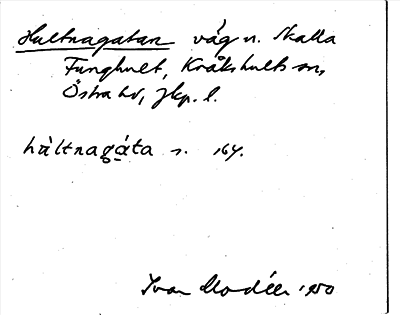 Hultnagatan väg n. Skalla
Funghult, Kråkshults sn,
Östra hd, Jkp. l.
hùltnagáta s. 164.
Ivar Modéer 1950